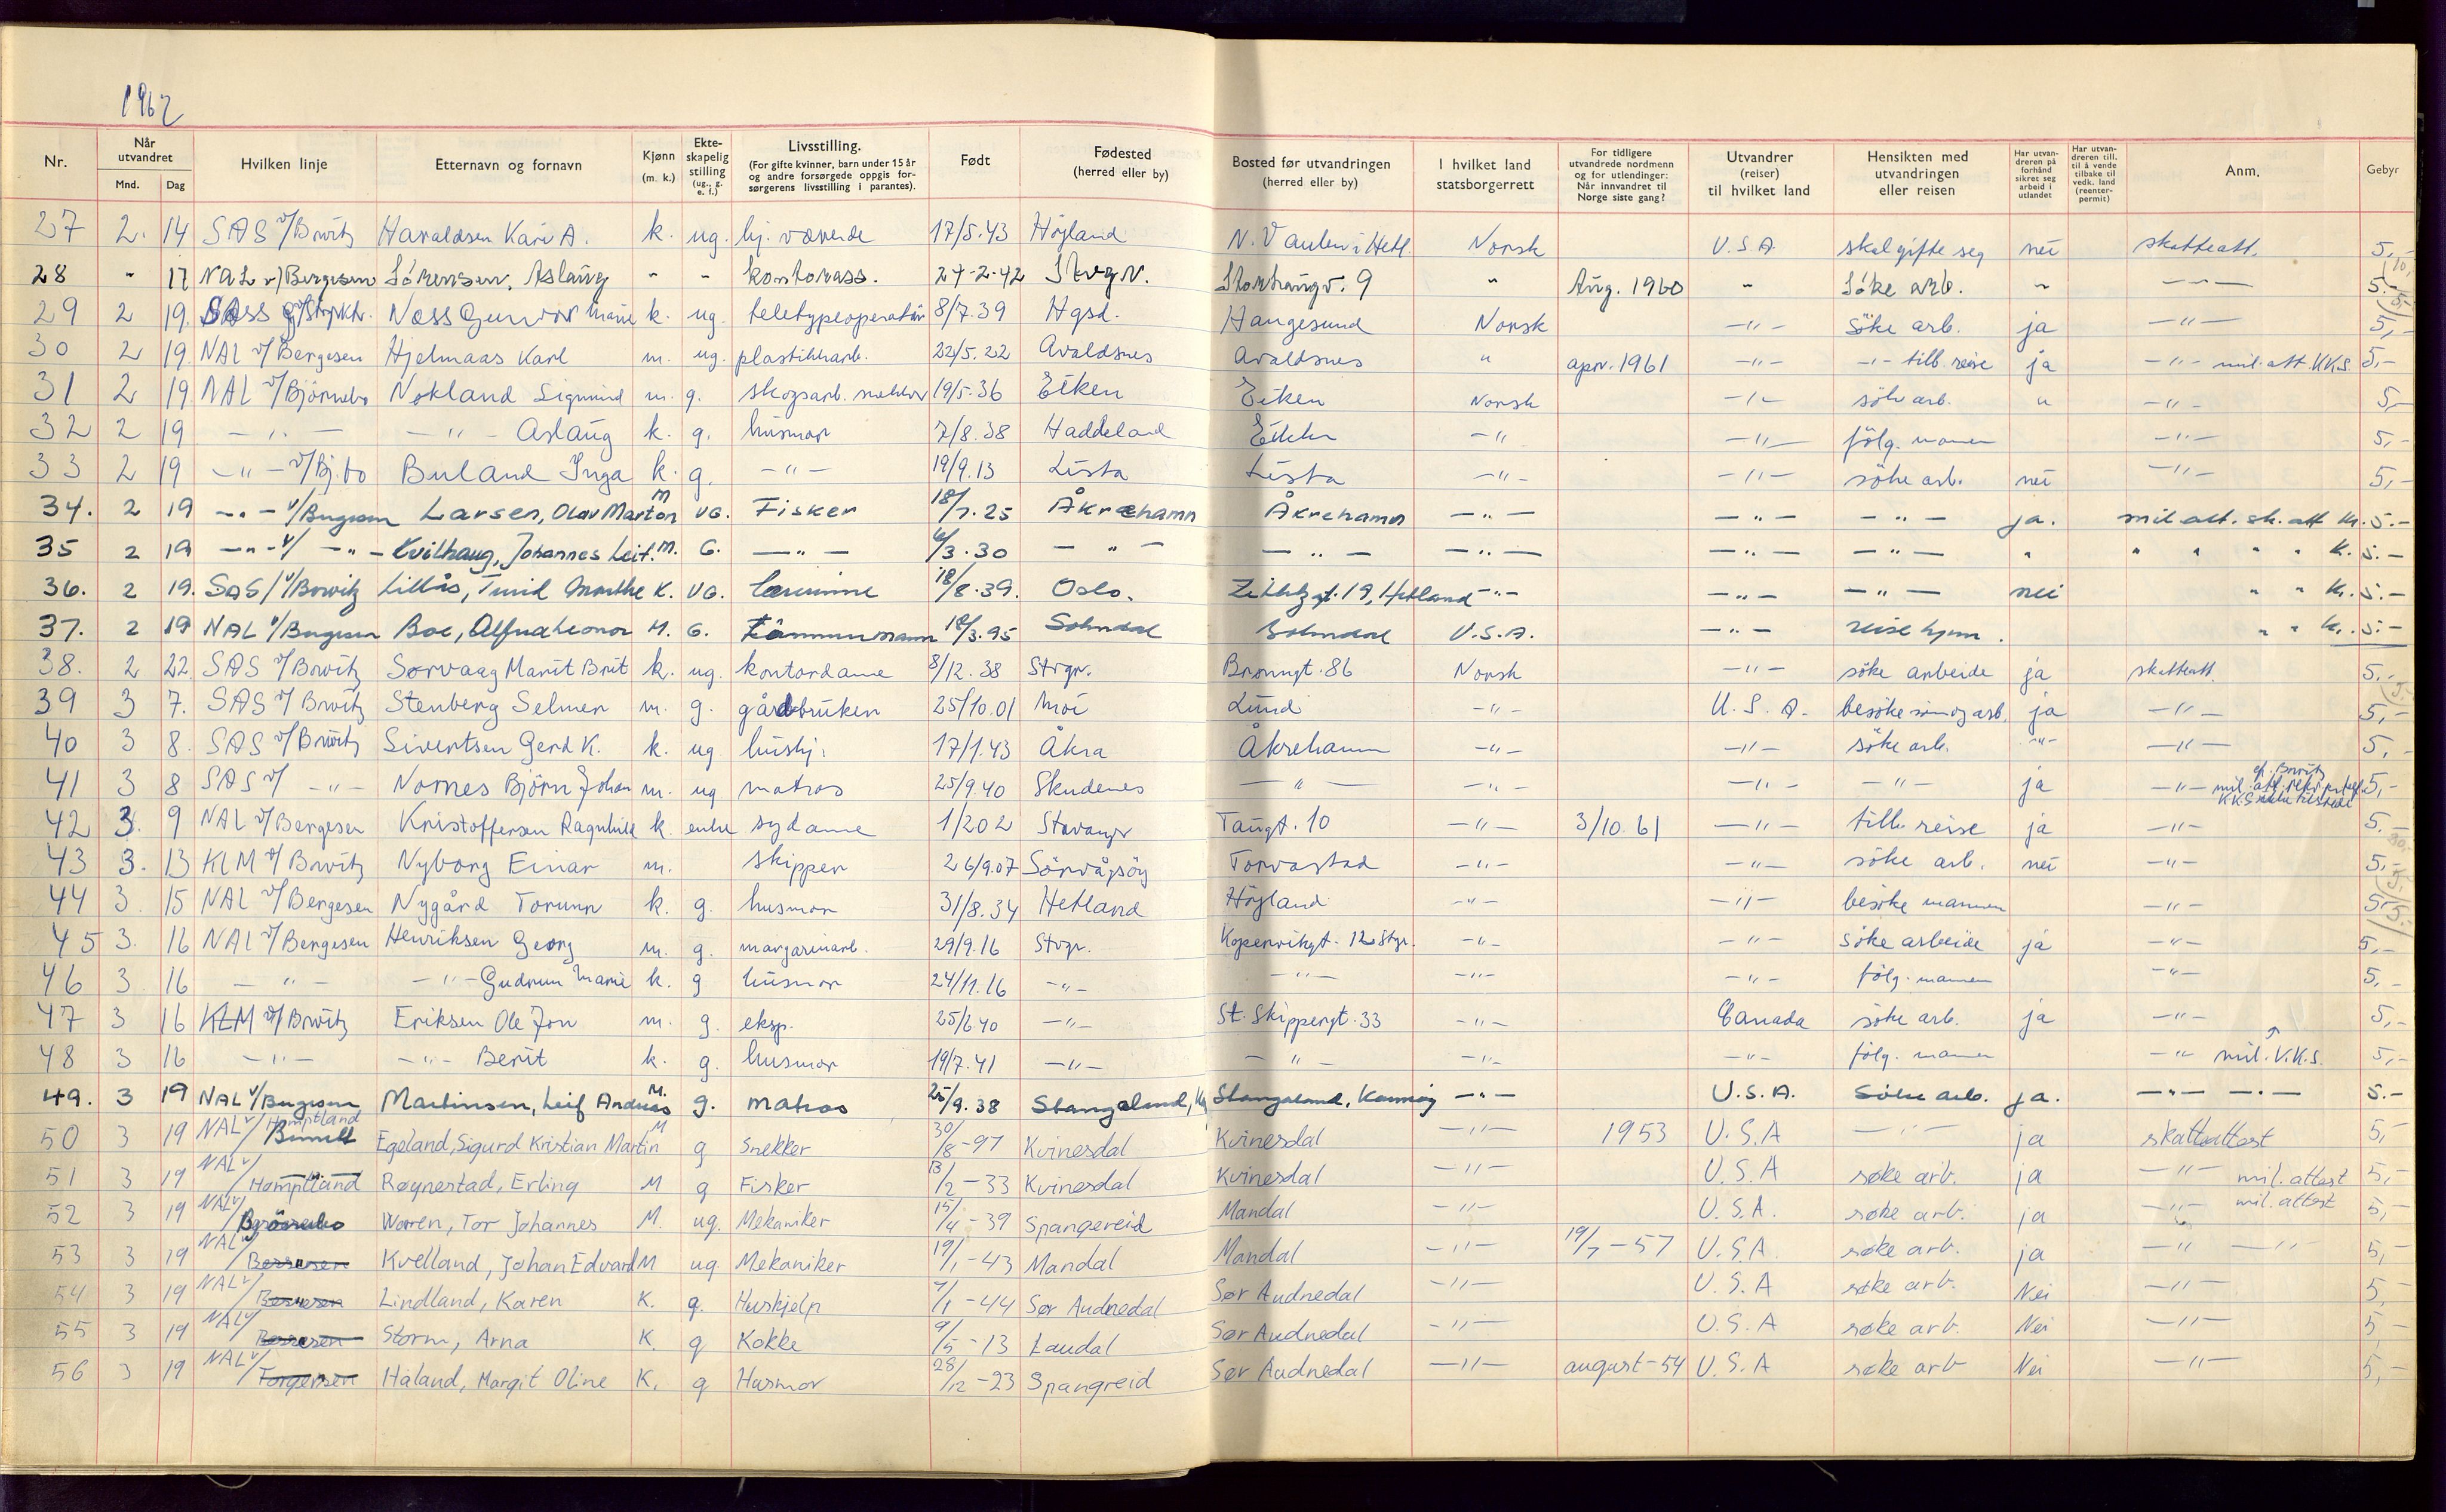 1962
Nr. Når utvandret Mnd. Dag Hvilken linje Etternavn og fornavn Kjønn (m. k.) Ekteskapelig stilling (ug., g. e. f.) Livsstilling. (For gifte kvinner, barn under 15 år og andre forsørgede oppgis forsørgerens livsstilling i parantes). Født Fødested (herred eller by) Bosted før utvandringen (herred eller by) I hvilket land statsborgerrett For tidligere utvandrede nordmenn og for utlendinger: Når innvandret til Norge siste gang? Utvandrer (reiser) til hvilket land Hensikten med utvandringen eller reisen Har utvandreren på forhånd sikret seg arbeid i utlandet Har utvandreren till. til å vende tilbake til vedk. land (reenterpermit) Anm. Gebyr
27 2. 14 SAS v/Bowitz Haraldsen Kari A. k. ug. hj. værende 17/5.43 Høyland N. Vaulen i Hetl. Norsk U.S.A. skal gifte seg nei skatteatt. 5,-
28 " 17 NAL v/Bergesen Sörensen, Aslaug " " kontorass. 27-2-42 Stvgr. 9 " Aug. 1960 " Söke arb. " — " — 5.-
29 2 19. SAS Næss Gunvor Marie k. ug. teletypeoperatör 8/7.39 Hgsd. Haugesund Norsk — " — söke arb. ja — " — 5,-
30 2 19. NAL v/Bergesen Hjelmaas Karl m. ug. plastikkarb. 22/5.22 Avaldsnes Avaldsnes " apr. 1961 — " — — " — tilb. reise ja — " — mil. att. KKS 5,-
31 2 19 NAL v/Björnebo Nokland Sigmund m. g. skogsarb. snekker 19/5.36 Eiken Eiken Norsk — " — söke arb. " — " — 5,-
32 2 19 — " — — " — Aslaug k. g. husmor 7/8.38 Haddeland Eiken — " — " — fölg. mannen — " — 5,-
33 2 19 — " — v/Bj.bo Buland Inga k. g. — " — 19/9.13 Lista Lista — " — — " — söke arb. nei — " — 5,-
34. 2 19 — " — v/Bergesen Larsen, Olav Marton M UG. Fisker 18/7.25 Åkrehamn Åkrehamn — " — — " — — " — ja. mil att. sk. att Kr. 5.-
35 2 19 — " — v/ — " — Kvilhaug, Johannes Leif. M. G. — " — 6/3.30 — " — — " — — " — — " — — " — " " " " " K. 5.-
36. 2 19. SAS/v/Bowitz Lillås, Turid Marthe K. UG. lærerinne 18/8.39. Oslo. 19, Hetland — " — — " — — " — nei " " Kr. 5.-
37. 2 19 NAL v/Bergesen Boe, Alfred Leonor M. G. Tömmermann 18/3.95 Sokndal Sokndal U.S.A. — " — reise hjem. " " Kr. 5.-
38. 2 22. SAS v/Bowitz Sørvaag Marit Brit k. ug. kontordame 8/12.38 Stvgr. Brønngt. 86 Norsk — " — söke arbeide ja skatteatt. 5.-
39 3 7. SAS v/Bowitz Stenberg Selmer m. g. gårdbruker 25/10.01 Moi Lund — " — U.S.A. besöke sönn og arb. ja — " — 5,-
40 3 8. SAS v/Bowitz Sivertsen Gerd K. k. ug. hushj. 17/1.43 Åkra Åkrehamn — " — — " — söke arb. — " — — " — 5,-
41 3 8 SAS v/ — " — Nornes Björn Johan m. ug matros 25/9.40 Skudenes — " — — " — — " — — " — ja — " — mil. att. 5,-
42 3. 9 NAL v/Bergesen Kristoffersen Ragnhild k. enke sydame 1/2 02 Stavanger Taugt. 10 — " — 3/10.61 — " — tilb. reise ja — " — 5.-
43 3. 13 KLM v/Bowitz Nyborg Einar m. skipper 26/9.07 Sörvågsöy Torvastad — " — — " — söke arb. nei — " — 5,-
44 3. 15 NAL v/Bergesen Nygård Torunn k. g. husmor 31/8.34 Hetland Höyland — " — — " — besöke mannen — " — 5,-
45 3. 16 NAL v/Bergesen Henriksen Georg m. g. margarinarb. 29/9.16 Stvgr. Kopervikgt. 12 Stgr. — " — — " — söke arbeide ja — " — 5,-
46 3 16 — " — — " — Gudrun Marie k. g husmor 24/11.16 — " — — " — — " — — " — fölg. mannen — " — 5,-
47 3 16 KLM v/Bowitz Eriksen Ole Jon m. g. eksp. 25/6 40 — " — St. Skippergt. 33 — " — Canada söke arb. ja — " — 5,-
48 3 16 — " — — " — Berit k. g. husmor 19/7.41 — " — — " — — " — — " — fölg. mannen — " — mil. V.K.S. 5,-
49. 3 19 NAL v/Bergesen Martinsen, Leif Andreas M. g. matros 25/9.38 Stangeland, Stangaland, Karmöy — " — U.S.A. Söke arb. ja. — " — — " — 5.-
50 3 19 NAL v/ Homptland Egeland, Sigurd Kristian Martin M g Snekker 30/8-97 Kvinesdal Kvinesdal — " — 1953 U.S.A — " — ja skatteattest 5,-
51 3 19 NAL v/ Homptland Røynestad, Erling M g Fisker 13/2-33 Kvinesdal Kvinesdal — " — U.S.A søke arb. ja — " — mil. attest 5,-
52 3 19 NAL v/ Woren, Tor Johannes M. ug. Mekaniker 15/4-39 Spangereid Mandal — " — U.S.A. søke arb. ja — " — mil. attest 5,-
53 3 19 NAL v/ Kvelland, Johan Edvard M ug Mekaniker 19/1-43 Mandal Mandal — " — 19/7-57 U.S.A søke arb. ja — " — " — 5,-
54 3 19 NAL v/ Lindland, Karen K. g. Huskjelp 7/1-44 Sør Audnedal Sør Audnedal — " — U.S.A søke arb. Nei — " — 5,-
55 3 19 NAL v/ Storm, Arna K. g Kokke 9/5-13 Laudal Sør Audnedal — " — U.S.A søke arb. Nei — " — 5,-
56 3 19 NAL v/ Torgersen Håland, Margit Oline K. g Husmor 28/12-23 Spangreid Sør Audnedal — " — august-54 U.S.A søke arb Nei — " — 5,-